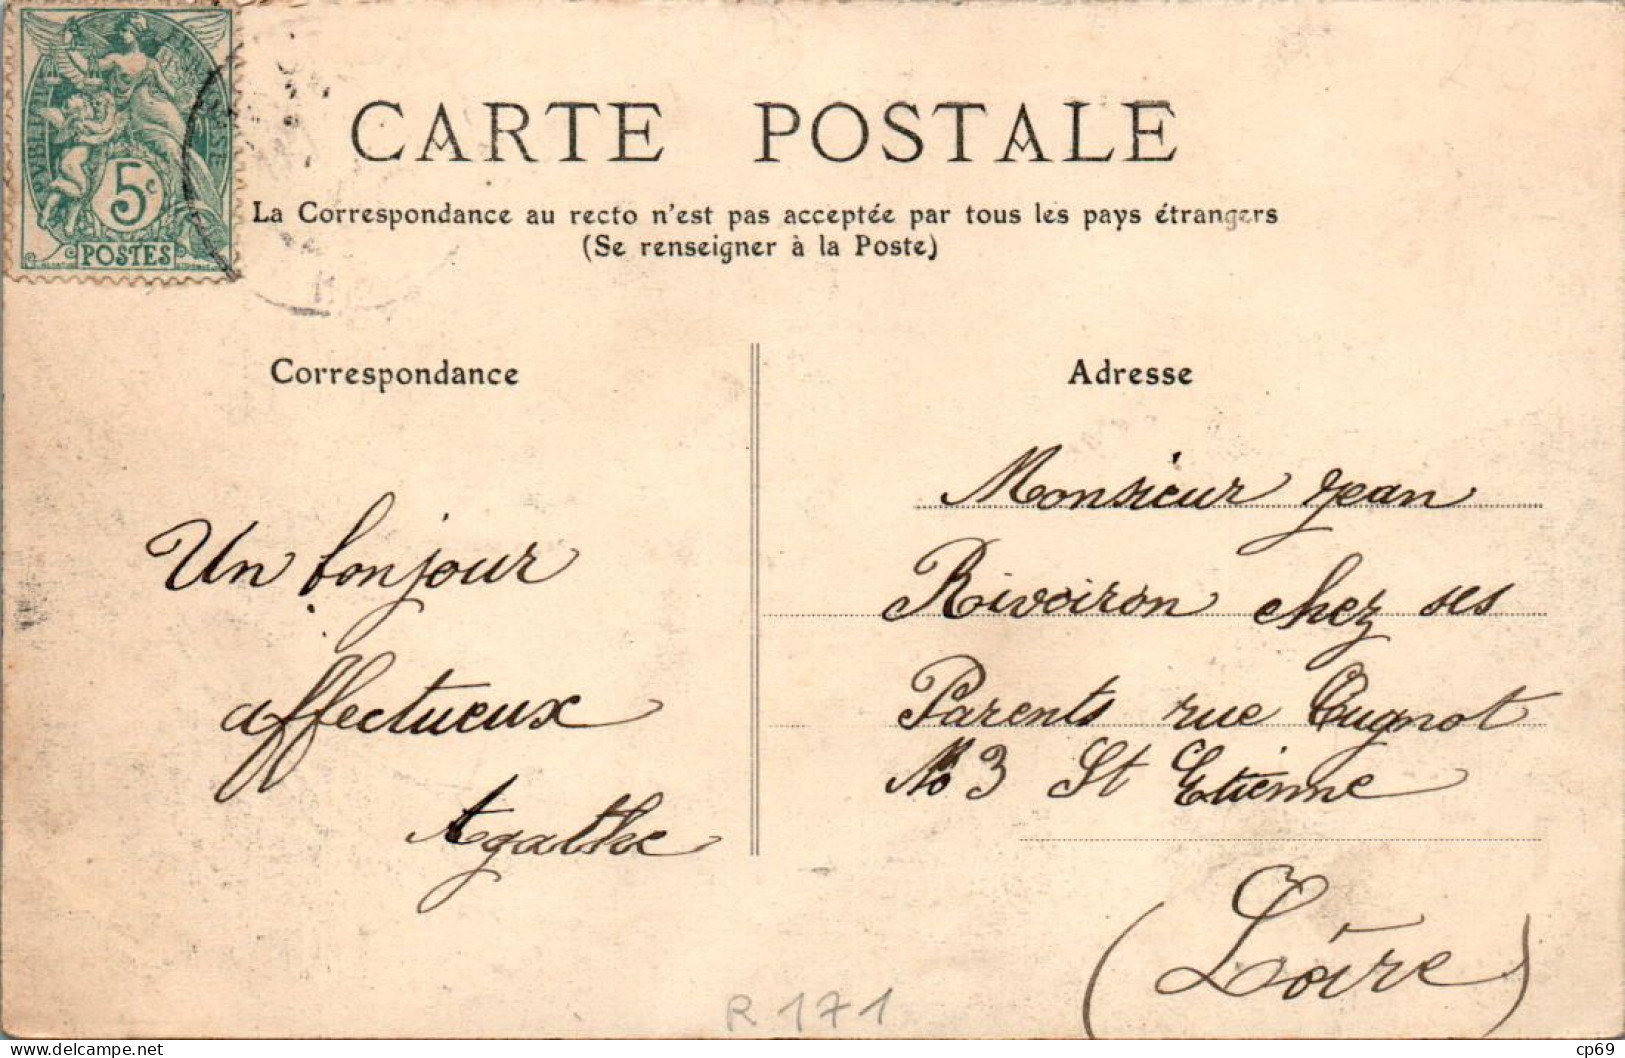 RÉPUBLIQUE FRANÇAISE
5c
POSTES
CARTE POSTALE
La Correspondance au recto n'est pas acceptée par tous les pays étrangers
(Se renseigner à la Poste)
Correspondance
Un bonjour
affectueux
Agathe
Adresse
Monsieur Jean
Rivoiron chez ses
Parents rue Cugnot
No 3 St Etienne
(Loire)
R 171
www.delcampe.net
cp69